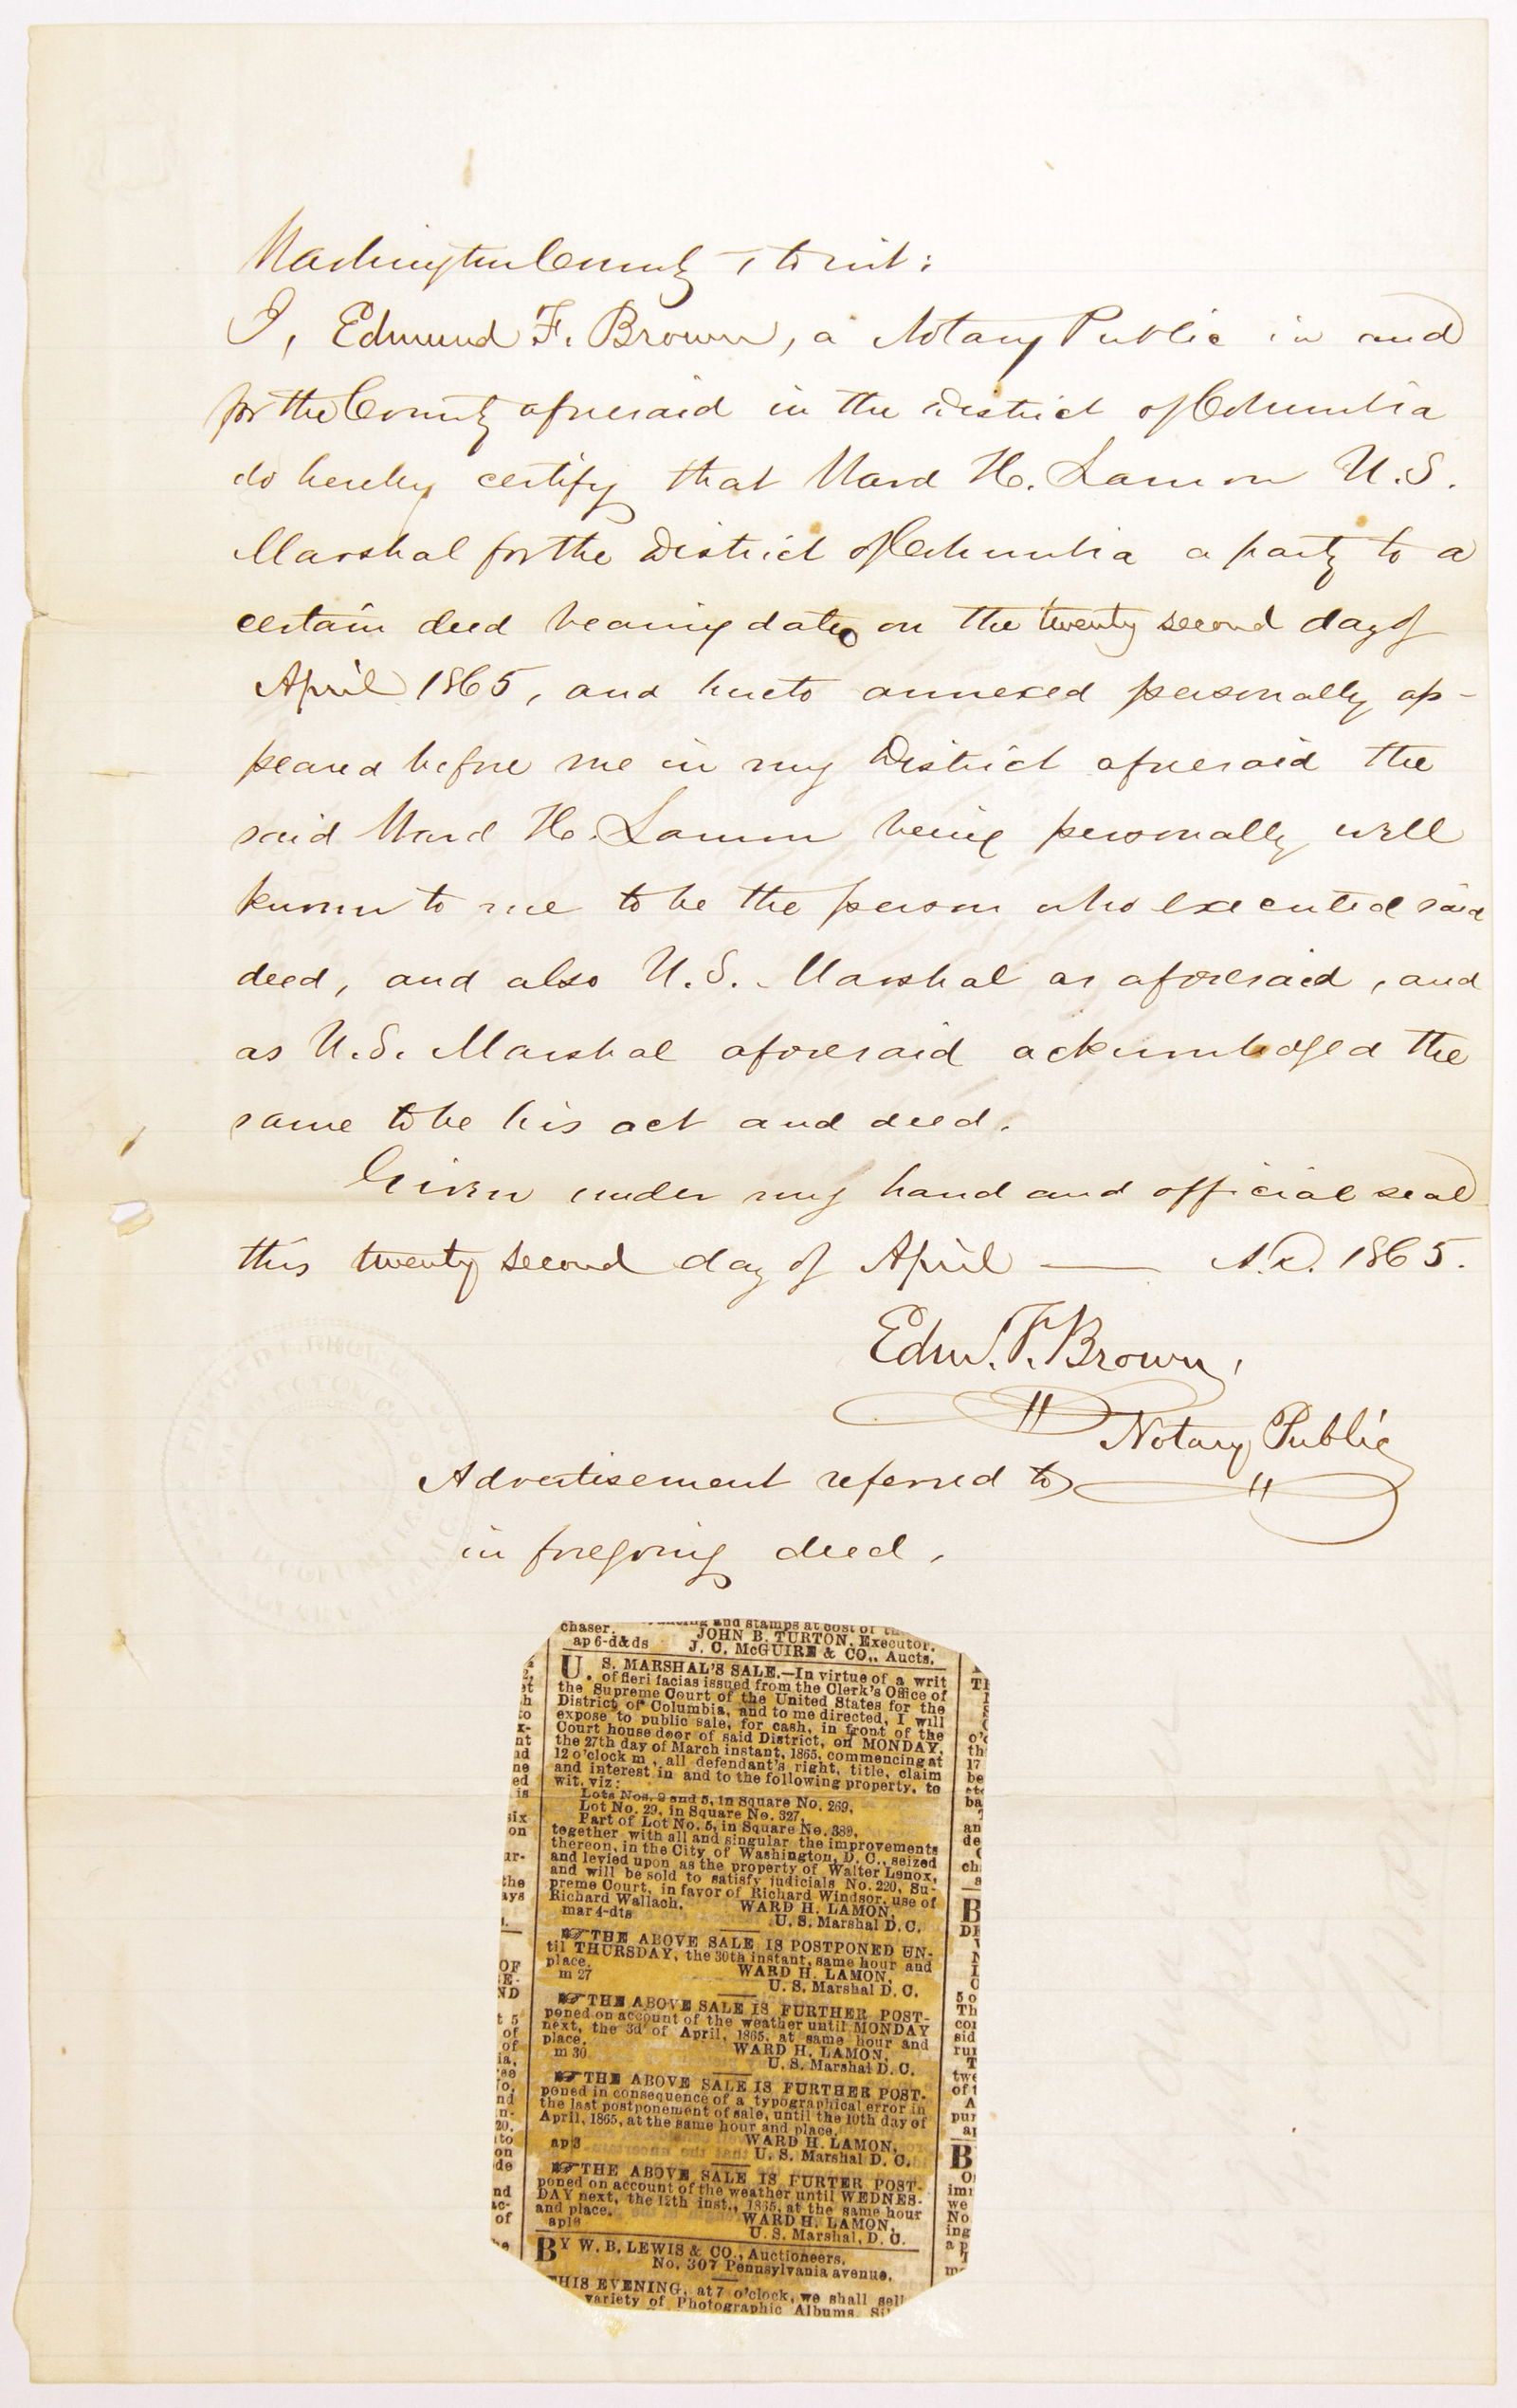 Washington County, to wit:
I, Edmund F. Brown, a Notary Public in and
for the County aforesaid in the District of Columbia
do hereby certify that Ward H. Lamon U.S.
Marshal for the District of Columbia a party to a
certain deed bearing date on the twenty second day of
April 1865, and hereto annexed personally ap-
peared before me in my District aforesaid the
said Ward H. Lamon being personally well
known to me to be the person who executed said
deed, and also U.S. Marshal as aforesaid, and
as U.S. Marshal aforesaid acknowledged the
same to be his act and deed.
Given under my hand and official seal
this twenty second day of April — A.D. 1865.
Edm. F. Brown,
Notary Public
Advertisement referred to
in foregoing deed.
and stamps at cost of
chaser. JOHN B. TURTON, Executor.
ap 6-d&ds J. C. McGUIRE & CO., Aucts.
U. S. MARSHAL'S SALE.—In virtue of a writ
of fieri facias issued from the Clerk's Office of
the Supreme Court of the United States for the
District of Columbia, and to me directed, I will
expose to public sale, for cash, in front of the
Court house door of said District, on MONDAY,
the 27th day of March instant, 1865, commencing at
12 o'clock m, all defendant's right, title, claim
and interest in and to the following property, to
wit, viz:
Lots Nos. 2 and 5, in Square No. 269,
Lot No. 29, in Square No. 327,
Part of Lot No. 5, in Square No. 389,
together with all and singular the improvements
thereon, in the City of Washington, D. C., seized
and levied upon as the property of Walter Lenox,
and will be sold to satisfy judicials No. 220, Su-
preme Court, in favor of Richard Windsor, use of
Richard Wallach. WARD H. LAMON,
mar 4-dts U. S. Marshal D. C.
☞THE ABOVE SALE IS POSTPONED UN-
til THURSDAY, the 30th instant, same hour and
place. WARD H. LAMON,
m 27 U. S. Marshal D. C.
☞THE ABOVE SALE IS FURTHER POST-
poned on account of the weather until MONDAY
next, the 3d of April, 1865, at same hour and
place. WARD H. LAMON,
m 30 U. S. Marshal D. C.
☞THE ABOVE SALE IS FURTHER POST-
poned in consequence of a typographical error in
the last postponement of sale, until the 10th day of
April, 1865, at the same hour and place.
WARD H. LAMON,
ap 3 U. S. Marshal D. C.
☞THE ABOVE SALE IS FURTER POST-
poned on account of the weather until WEDNES-
DAY next, the 12th inst., 1865, at the same hour
and place. WARD H. LAMON,
ap10 U. S. Marshal, D. C.
BY W. B. LEWIS & CO., Auctioneers,
No. 307 Pennsylvania avenue.
THIS EVENING, at 7 o'clock, we shall sell
variety of Photographic Albums,